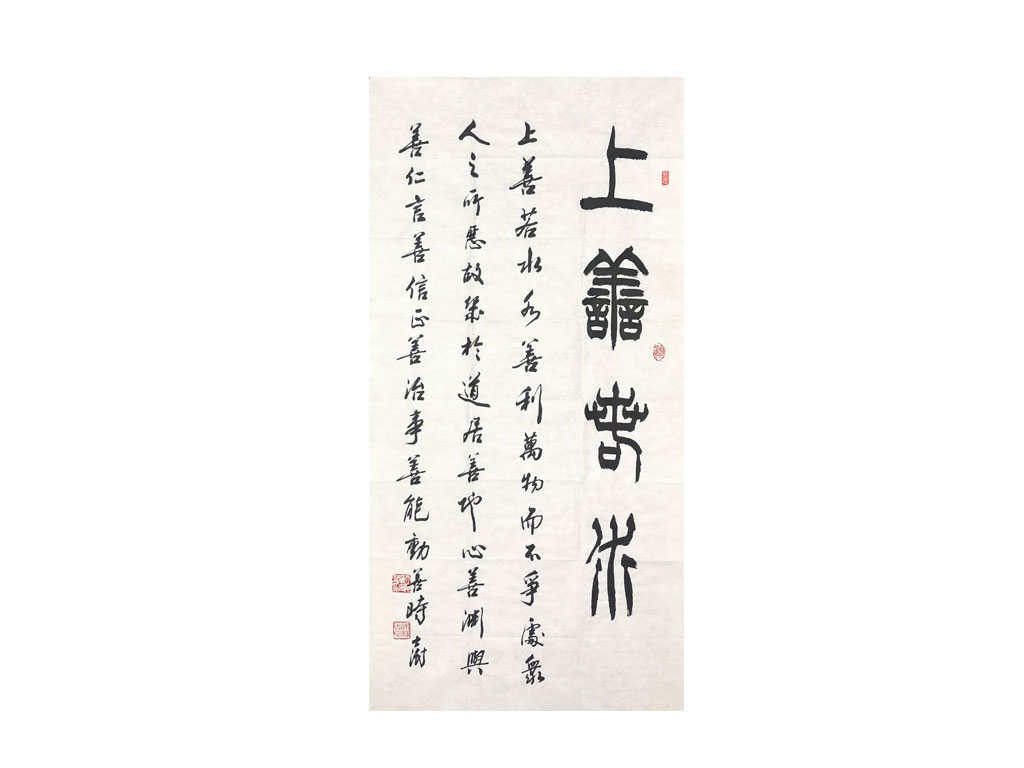 上善若水
上善若水水善利萬物而不爭處衆
人之所惡故幾於道居善地心善渊與
善仁言善信正善治事善能動善時